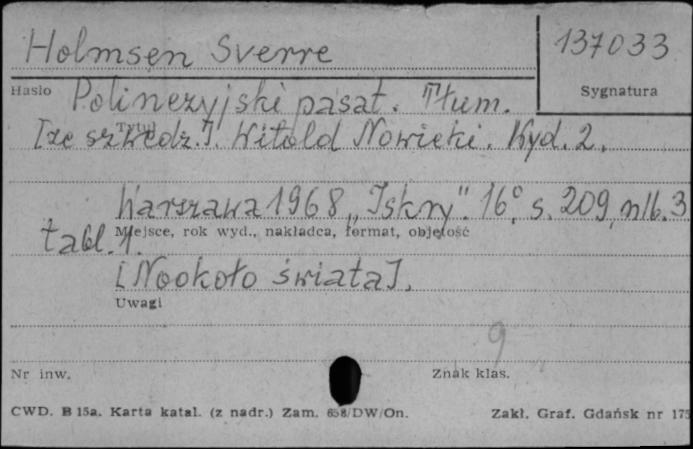 Holmsen Sverre
137033
Hasło
Sygnatura
Polinezyjski pasat. Tłum.
Tytuł
[ze szwedz.]. Witold Nowicki. Wyd. 2.
Warszawa 1968 „Iskry". 16°, s. 209, nlb. 3
Miejsce, rok wyd., nakładca, format, objętość
tabl. 1.
[Nookoło świata].
Uwagi
9
Nr inw.
Znak klas.
CWD. B 15a. Karta katal. (z nadr.) Zam. 658/DW/On.
Zakł. Graf. Gdańsk nr 175